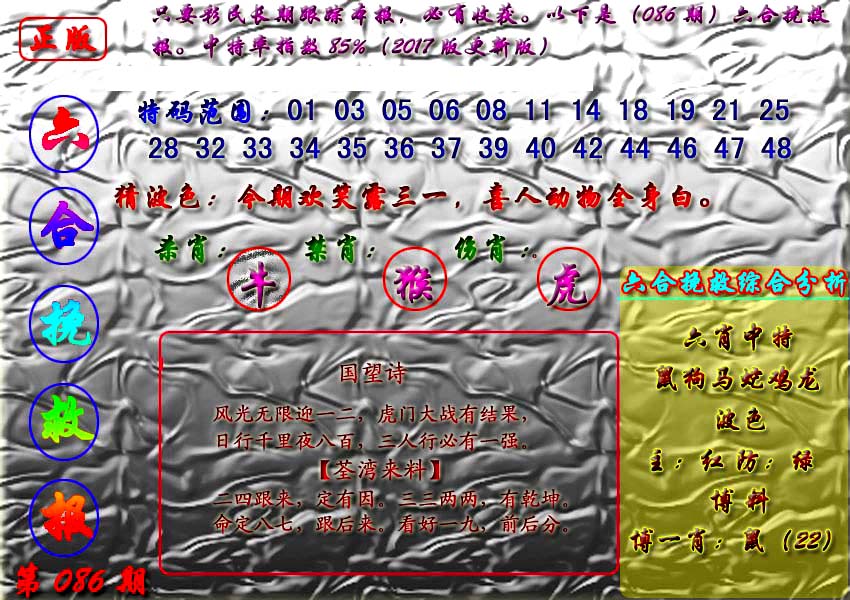 正版
只要彩民长期跟踪本报，必有收获。以下是（086期）六合挽救
报。中特率指数85%（2017版更新版）
六
合
挽
救
报
第086期
特码范围：01 03 05 06 08 11 14 18 19 21 25
28 32 33 34 35 36 37 39 40 42 44 46 47 48
猜波色：今期欢笑露三一，喜人动物全身白。
杀肖：牛 禁肖：猴 伤肖：虎
国望诗
风光无限迎一二，虎门大战有结果，
日行千里夜八百，三人行必有一强。
【荃湾来料】
二四跟来，定有因。三三两两，有乾坤。
命定八七，跟后来。看好一九，前后分。
六合挽救综合分析
六肖中特
鼠狗马蛇鸡龙
波色
主：红防：绿
博料
博一肖：鼠（22）